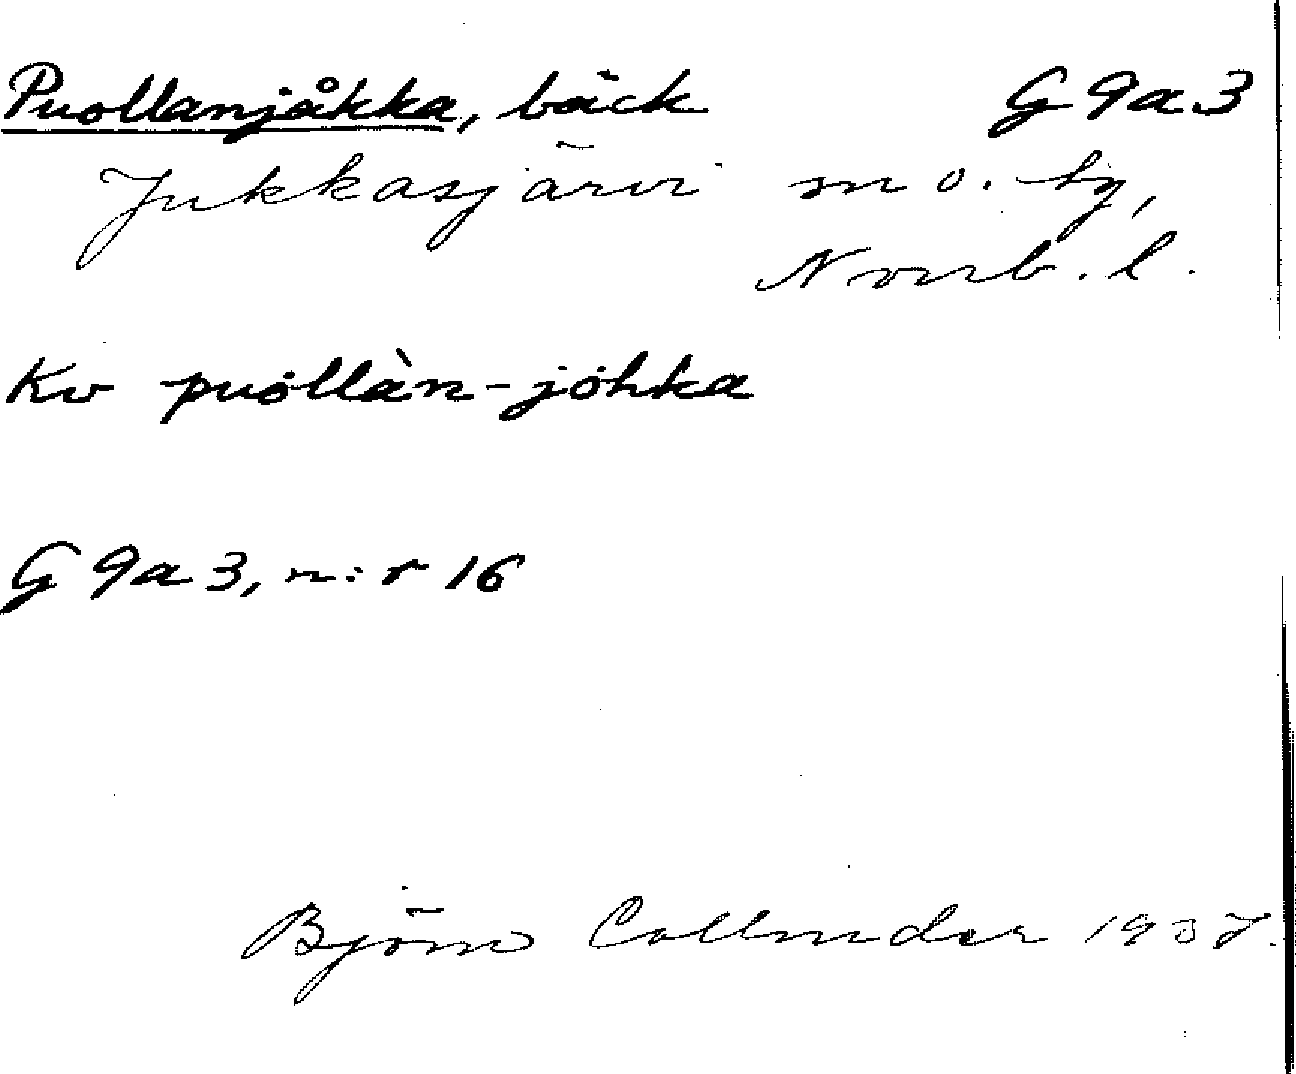 Puollanjåkka, bäck G 9a 3
Jukkasjärvi sn o. tg,
Norrb. l.
Kv puollàn-johka
G 9a 3, n:r 16
Björn Collinder 1937.